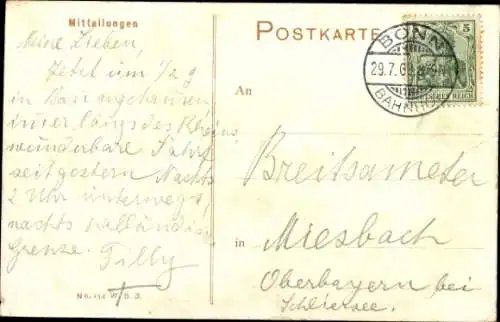 Mitteilungen
Meine Lieben,
Jetzt um 1/2 9
in Bonn angekommen
immer längs des Rheins
wunderbare Fahrt
seit gestern Nachts
2 Uhr unterwegs,
nachts holländische
Grenze. Tilly
No. 114 W. B. J.
POSTKARTE
5
BONN
29.7.0
BAHNHOF
REICH
An
Breitsameter
in Miesbach
Oberbayern bei
Schliersee.